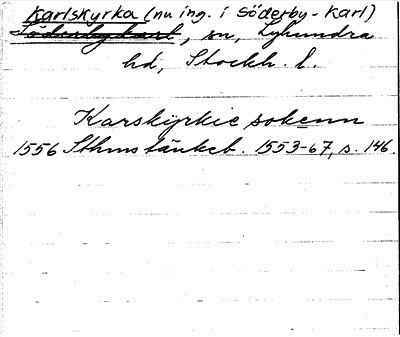 Karlskyrka (nu ing. i Söderby-Karl)
Söderby Karl, sn, Lyhundra
hd, Stockh. l.
Karskÿrkie sokenn
1556 Sthms tänkeb. 1553-67, s. 146.